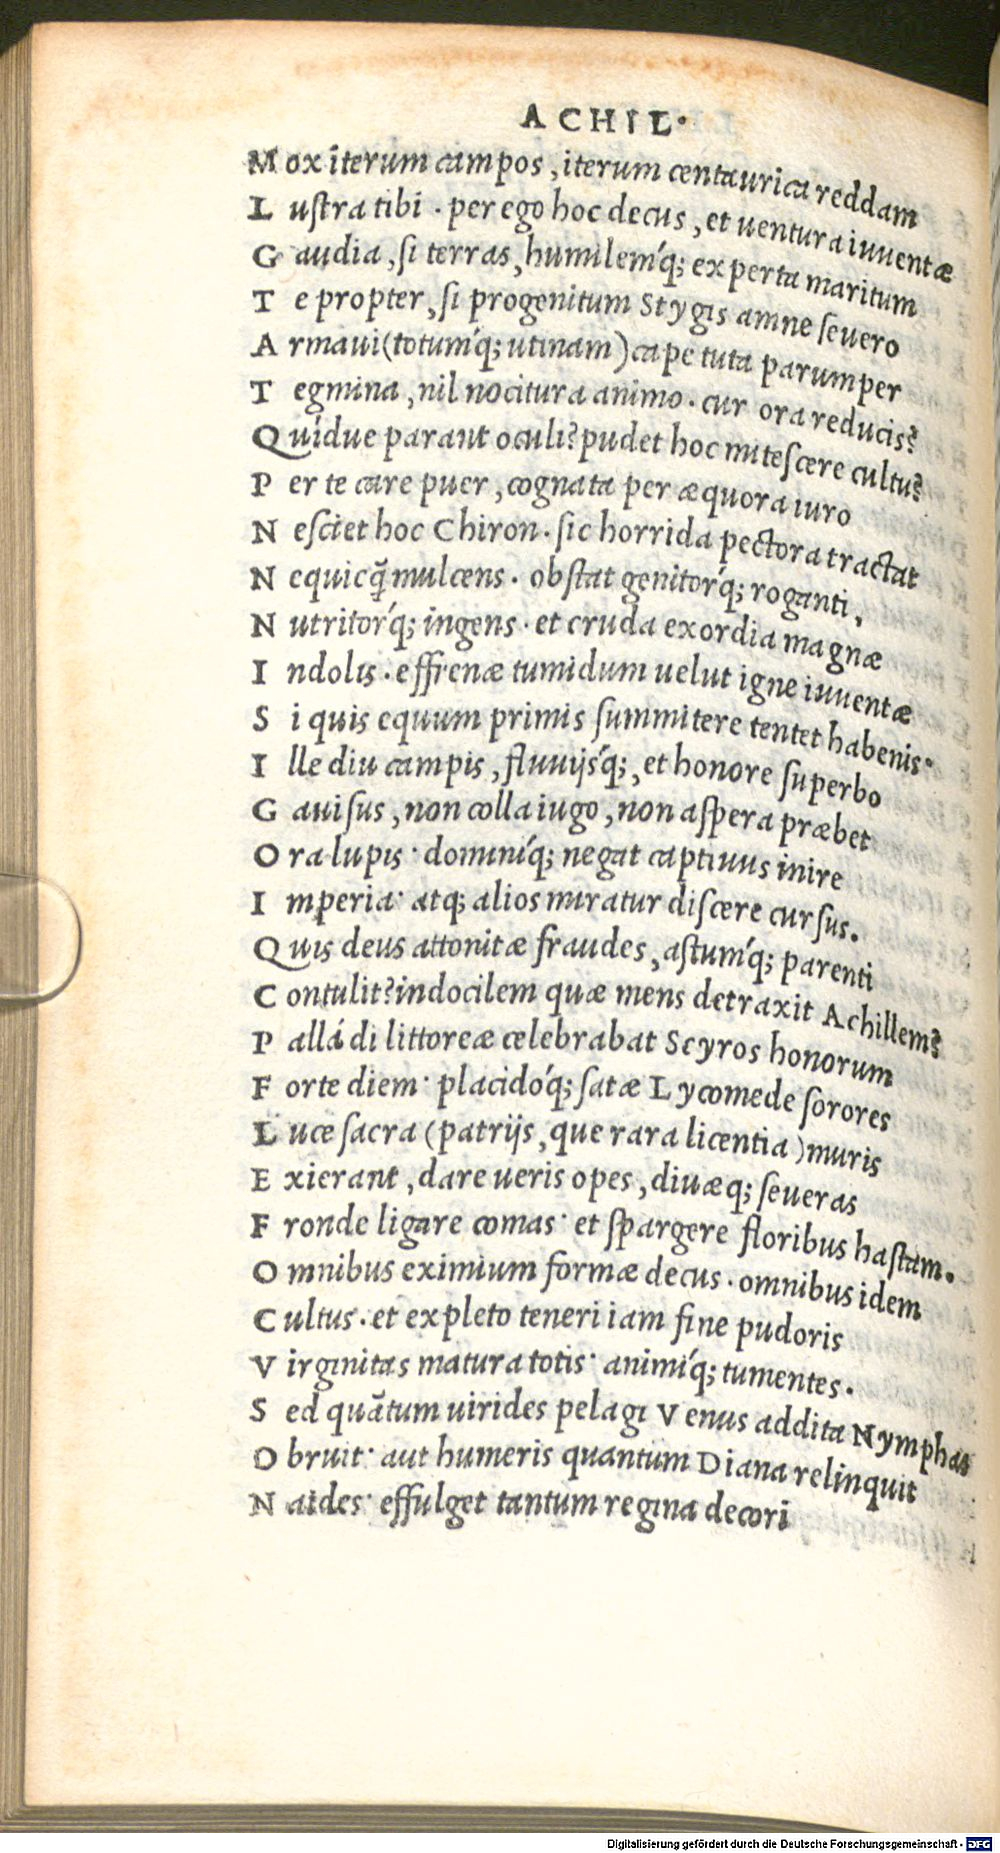 ACHIL·
Mox iterum campos, iterum centaurica reddam
Lustra tibi · per ego hoc decus, et uentura iuuentæ
Gaudia, si terras, humilemq́; experta maritum
Te propter, si progenitum Stygis amne seuero
Armaui (totumq́; utinam) cape tuta parumper
Tegmina, nil nocitura animo · cur ora reducis?
Quidue parant oculi? pudet hoc mitescere cultu?
Per te care puer, cognata per æquora iuro
Nesciet hoc Chiron · sic horrida pectora tractat
Nequicq̃ mulcens · obstat genitorq́; roganti,
Nutritorq́; ingens · et cruda exordia magnæ
Indolis · effrenæ tumidum uelut igne iuuentæ
Si quis equum primis summitere tentet habenis·
Ille diu campis, fluuijsq́;, et honore superbo
Gauisus, non colla iugo, non aspera præbet
Ora lupis· dominiq́; negat captiuus inire
Imperia· atq; alios miratur discere cursus.
Quis deus attonitæ fraudes, astumq́; parenti
Contulit? indocilem quæ mens detraxit Achillem?
Palládi littoreæ celebrabat Scyros honorum
Forte diem· placidoq́; satæ Lycomede sorores
Luce sacra (patrijs, que rara licentia) muris
Exierant, dare ueris opes, diuæq; seueras
Fronde ligare comas· et spargere floribus hastam.
Omnibus eximium formæ decus · omnibus idem
Cultus · et expleto teneri iam fine pudoris
Virginitas matura totis· animiq́; tumentes.
Sed quãtum uirides pelagi Venus addita Nymphas
Obruit· aut humeris quantum Diana relinquit
Naides· effulget tantum regina decori
Digitalisierung gefördert durch die Deutsche Forschungsgemeinschaft - DFG